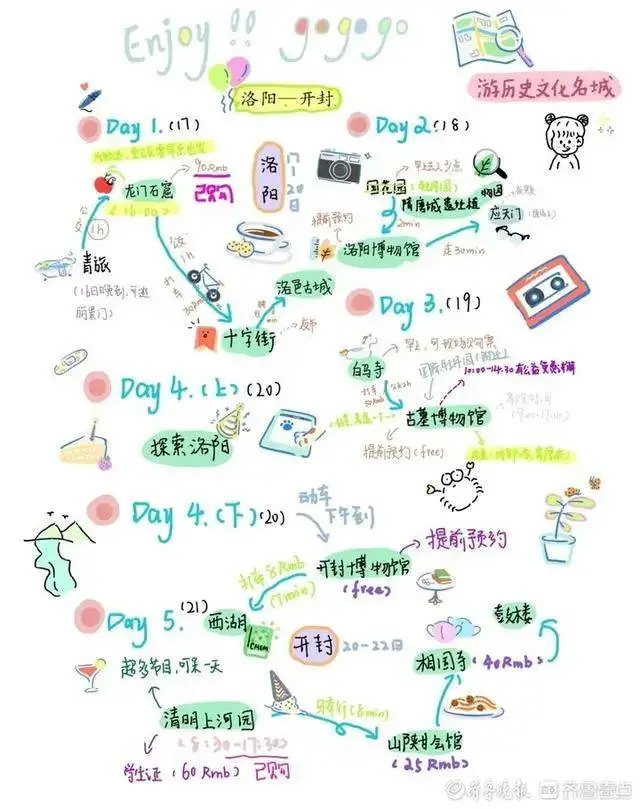 Enjoy !! gogogo
洛阳—开封
游历史文化名城
Day 1. (17)
90Rmb
龙门石窟
已购
(16:00)
公交
1h
青旅
公交
1h
打车
30Rmb
十字街
洛邑古城
洛阳
17-20日
Day 2. (18)
国花园
隋唐城遗址植物园
2min
提前预约
洛阳博物馆
走30min
应天门
Day 3. (19)
白马寺
早上,可现场购票
打车
50Rmb
10:00-14:30 有公益免费讲解
古墓博物馆
提前预约 (free)
Day 4. (上) (20)
探索洛阳
Day 4. (下) (20)
动车
下午到
提前预约
开封博物馆
(free)
打车8Rmb
(7min)
Day 5. (21)
西湖
开封
20-22日
相国寺 (40Rmb)
超多节目,可呆一天
清明上河园
(8:30-17:30)
学生证 (60Rmb) 已购
骑行 (8min)
山陕甘会馆
(25Rmb)
齐鲁晚报
齐鲁壹点